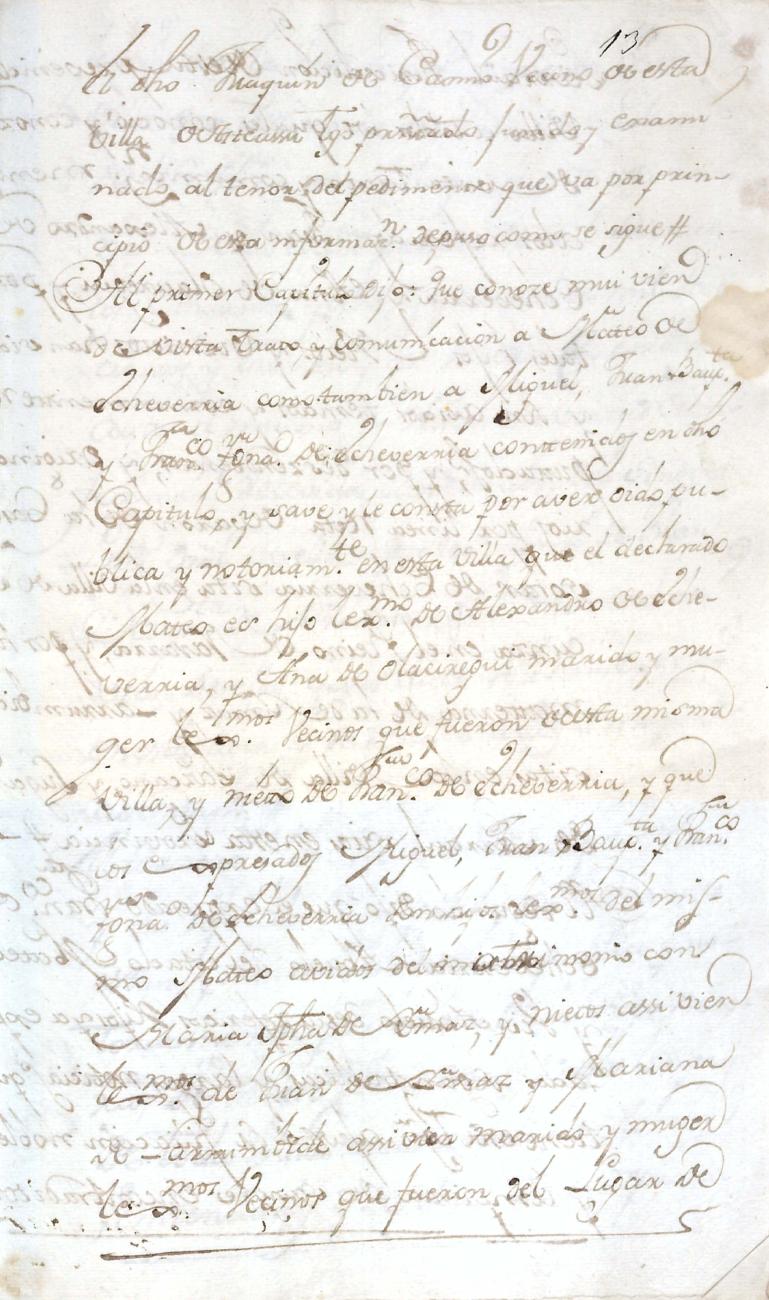 13
El dho Juaquin de Vecino de esta
Villa de Asteassu tgo pres.tado jurado y exami
nado al tenor del pedimento que va por prin-
cipio de esta informaz.n depuso como se sigue #
Al primer Capitulo Dijo: Que conoze mui vien
de Vista trato y comunicacion a Mateo de
Echeverria como tambien a Miguel, Juan Baup.ta
y Fran.co Ig.na de Echeverria contenidos en dho
Capitulo, y save y le consta por aver oido pu-
blica y notoriam.te en esta Villa que el declarado
Mateo es hijo lex.mo de Alexandro de Eche-
verria, y Ana de Olaciregui marido y mu-
ger lex.mos Vecinos que fueron de esta misma
Villa, y nieto de Fran.co de Echeverria, y que
los expresados Miguel, Juan Baup.ta y Fran.co
de Echeverria son hijos lex.mos del mis-
mo Mateo avidos del matrimonio con
Maria Jpha de y nietos assi vien
lex.mos de Juan de y Mariana
de assi vien marido y muger
lex.mos Vecinos que fueron del Lugar de